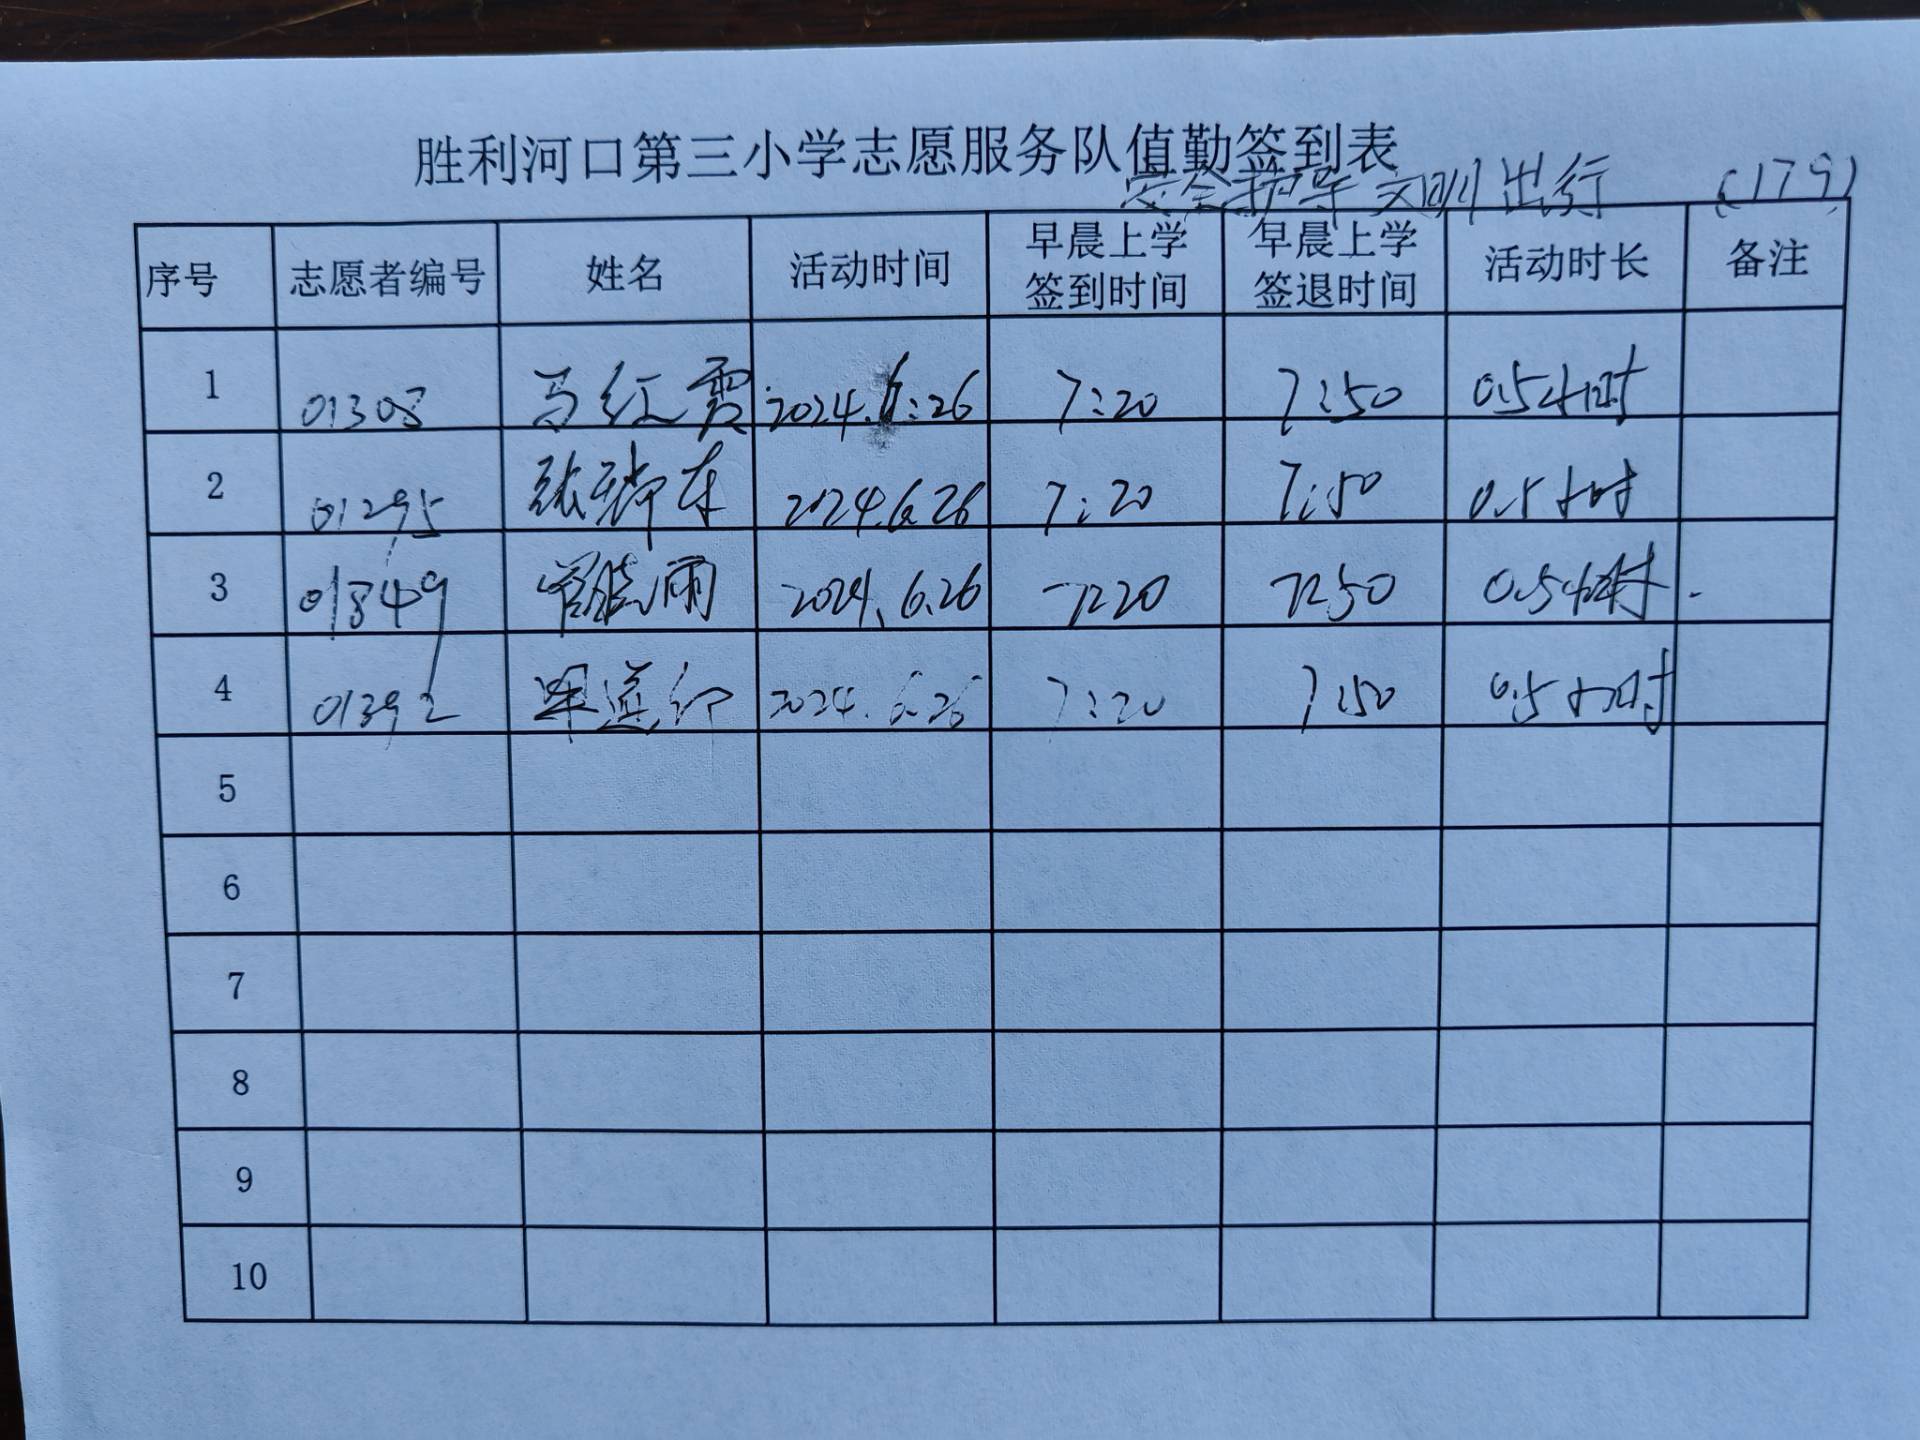 胜利河口第三小学志愿服务队值勤签到表
安全护导 文明出行 (179)
序号 志愿者编号 姓名 活动时间 早晨上学签到时间 早晨上学签退时间 活动时长 备注
1 01308 马红霞 2024.6.26 7:20 7:50 0.5小时
2 01295 张瑞东 2024.6.26 7:20 7:50 0.5小时
3 01849 管晓雨 2024.6.26 7:20 7:50 0.5小时
4 01392 2024.6.26 7:20 7:50 0.5小时
5
6
7
8
9
10